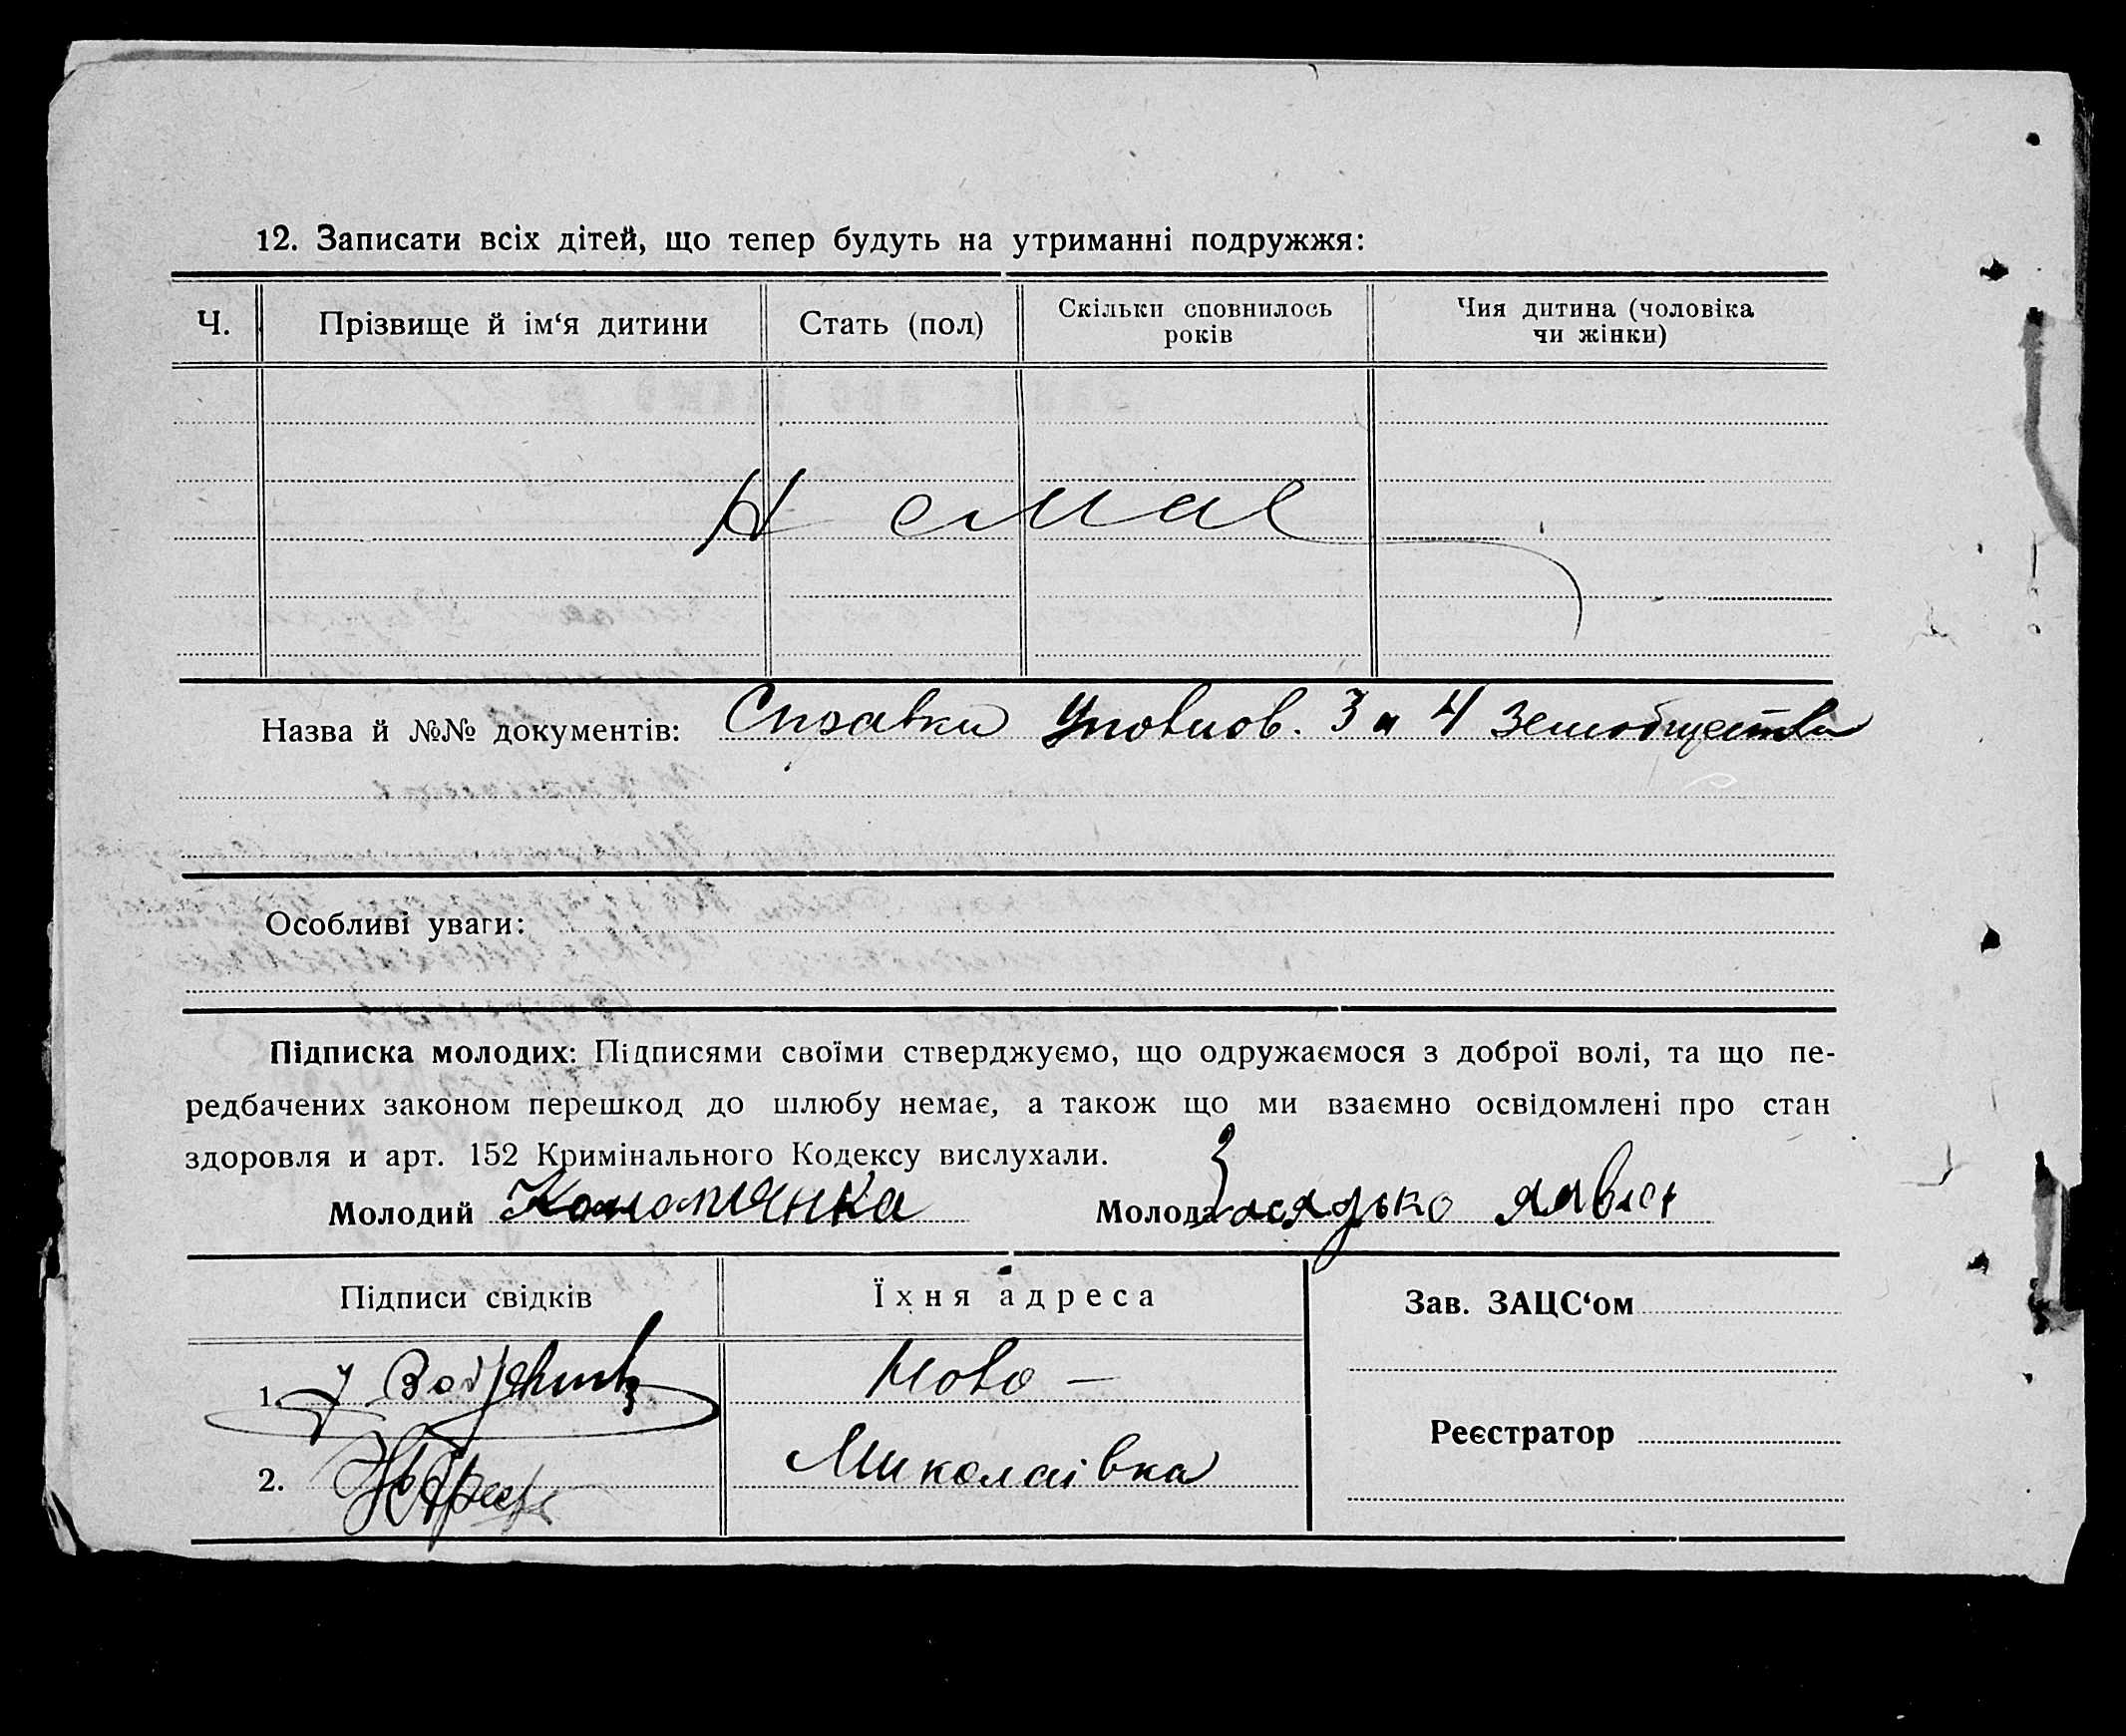 12. Записати всіх дітей, що тепер будуть на утриманні подружжя:
Ч. Прізвище й ім‘я дитини Стать (пол) Скільки сповнилось років Чия дитина (чоловіка чи жінки)
Немає
Назва й №№ документів: Справки Уповнов. 3 и 4 Земобщества
Особливі уваги:
Підписка молодих: Підписями своїми стверджуємо, що одружаємося з доброї волі, та що пе-
редбачених законом перешкод до шлюбу немає, а також що ми взаємно освідомлені про стан
здоровля и арт. 152 Кримінального Кодексу вислухали.
Молодий Коломлянка Молода Засядько
Підписи свідків Їхня адреса Зав. ЗАЦС‘ом
1. Ново-
Реєстратор
2. Миколаівка